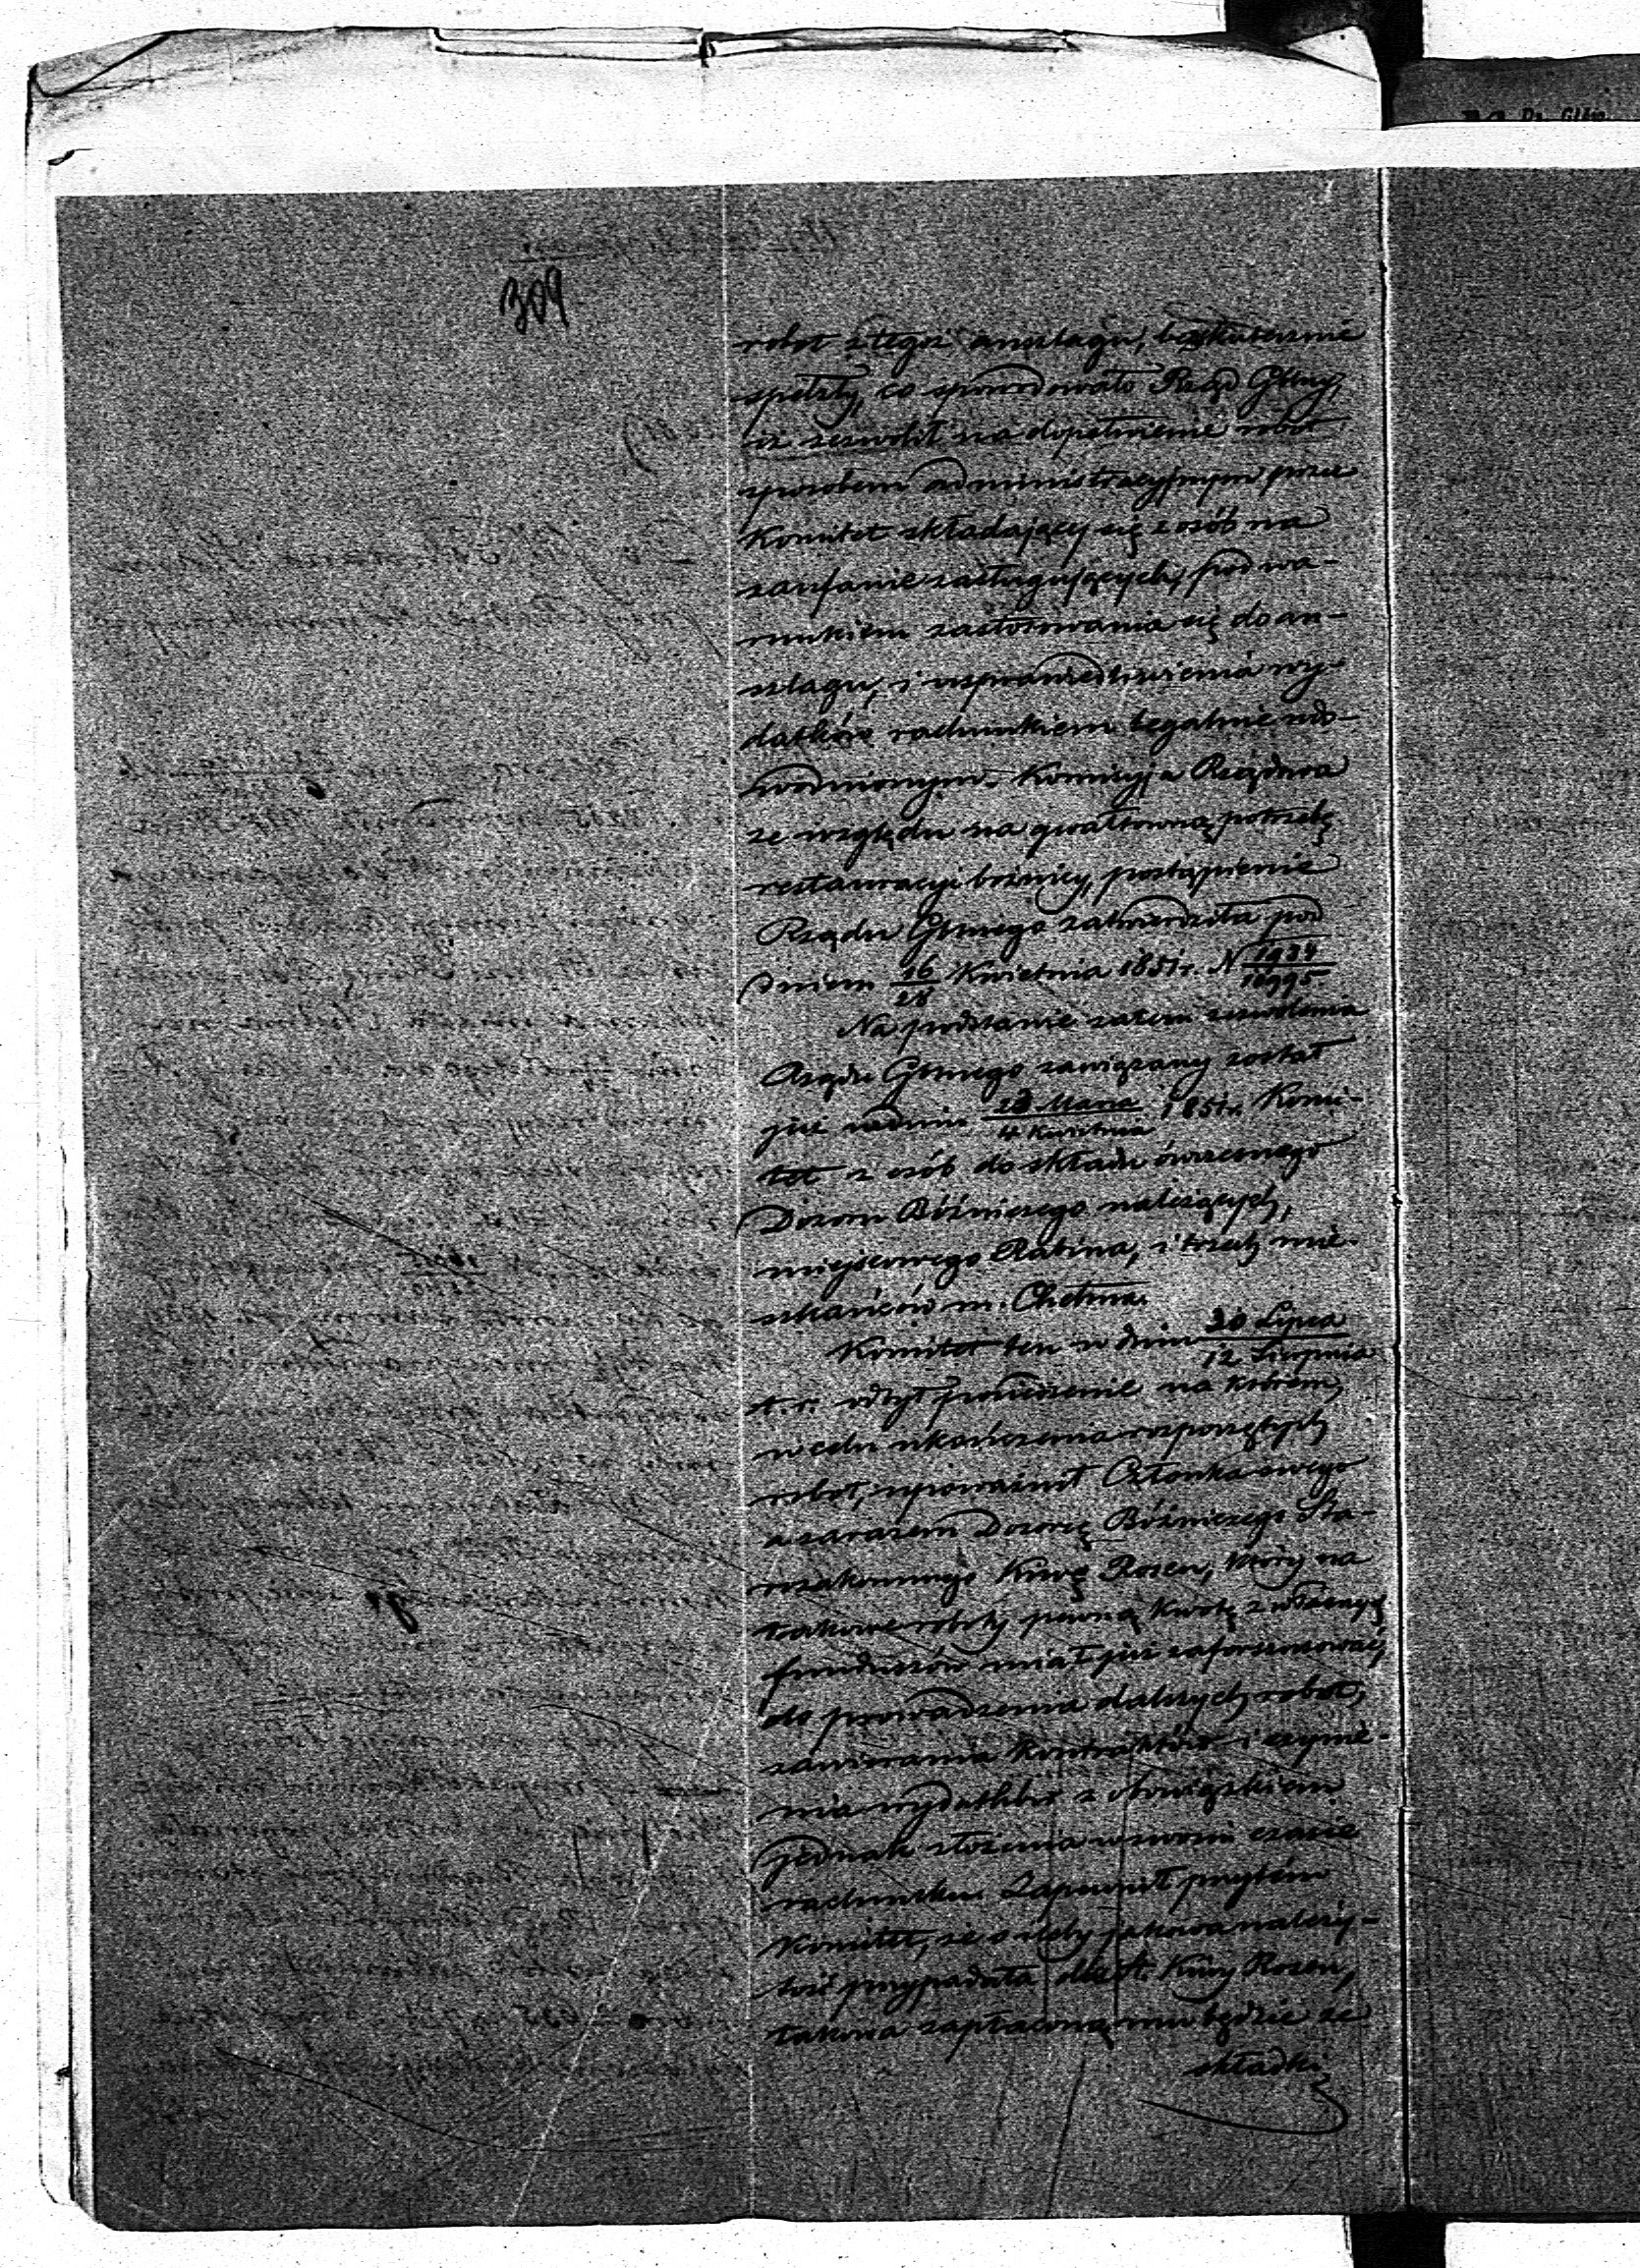 309
robot z tegoż anszlagu, bezskutecznie
spełzły, co spowodowało Rząd Gbrny,
iż zezwolił na dopełnienie robot
sposobem administracyjnym przez
Komitet składający się z osób na
zaufanie zasługujących, pod wa-
runkiem zastosowania się do an-
szlagu, i usprawiedliwienia wy-
datków rachunkiem legalnie udo-
wodnionym. Kommissyja Rządowa
ze względu na gwałtowną potrzebę
restauracyi bóżnicy, postąpienie
Rządu Gbrnego zatwierdziła pod
dniem 16/28 Kwietnia 1851 r. N 1934/16995.
Na podstawie zatem zezwolenia
Rządu Gbrnego zawiązany został
już w dniu 23 Marca/4 Kwietnia 1851 r. Komi-
tet z osób do składu ówczesnego
Dozoru Bóżniczego należących,
miejscowego Rabina, i trzech mie-
szkańców m. Chełma.
Komitet ten w dniu 30 Lipca/12 Sierpnia
t. r. odbył posiedzenie na którem,
w celu ukończenia rozpoczętych
robot, upoważnił Członka swego
a zarazem Dozorcę Bóżniczego Sta-
rozakonnego Kiwę Rosen, który na
takowe roboty pewną kwotę z własnych
funduszów miał już zaforszusować,
do prowadzenia dalszych robot,
zawierania kontraktów i czynie-
nia wydatków z obowiązkiem
jednak złożenia w swoim czasie
rachunku. Zapewnił przytém
Komitet, że o ileby jakowa należy-
tość przypadała dla St. Kiwy Rosen,
takowa zapłaconą mu będzie ze
składki